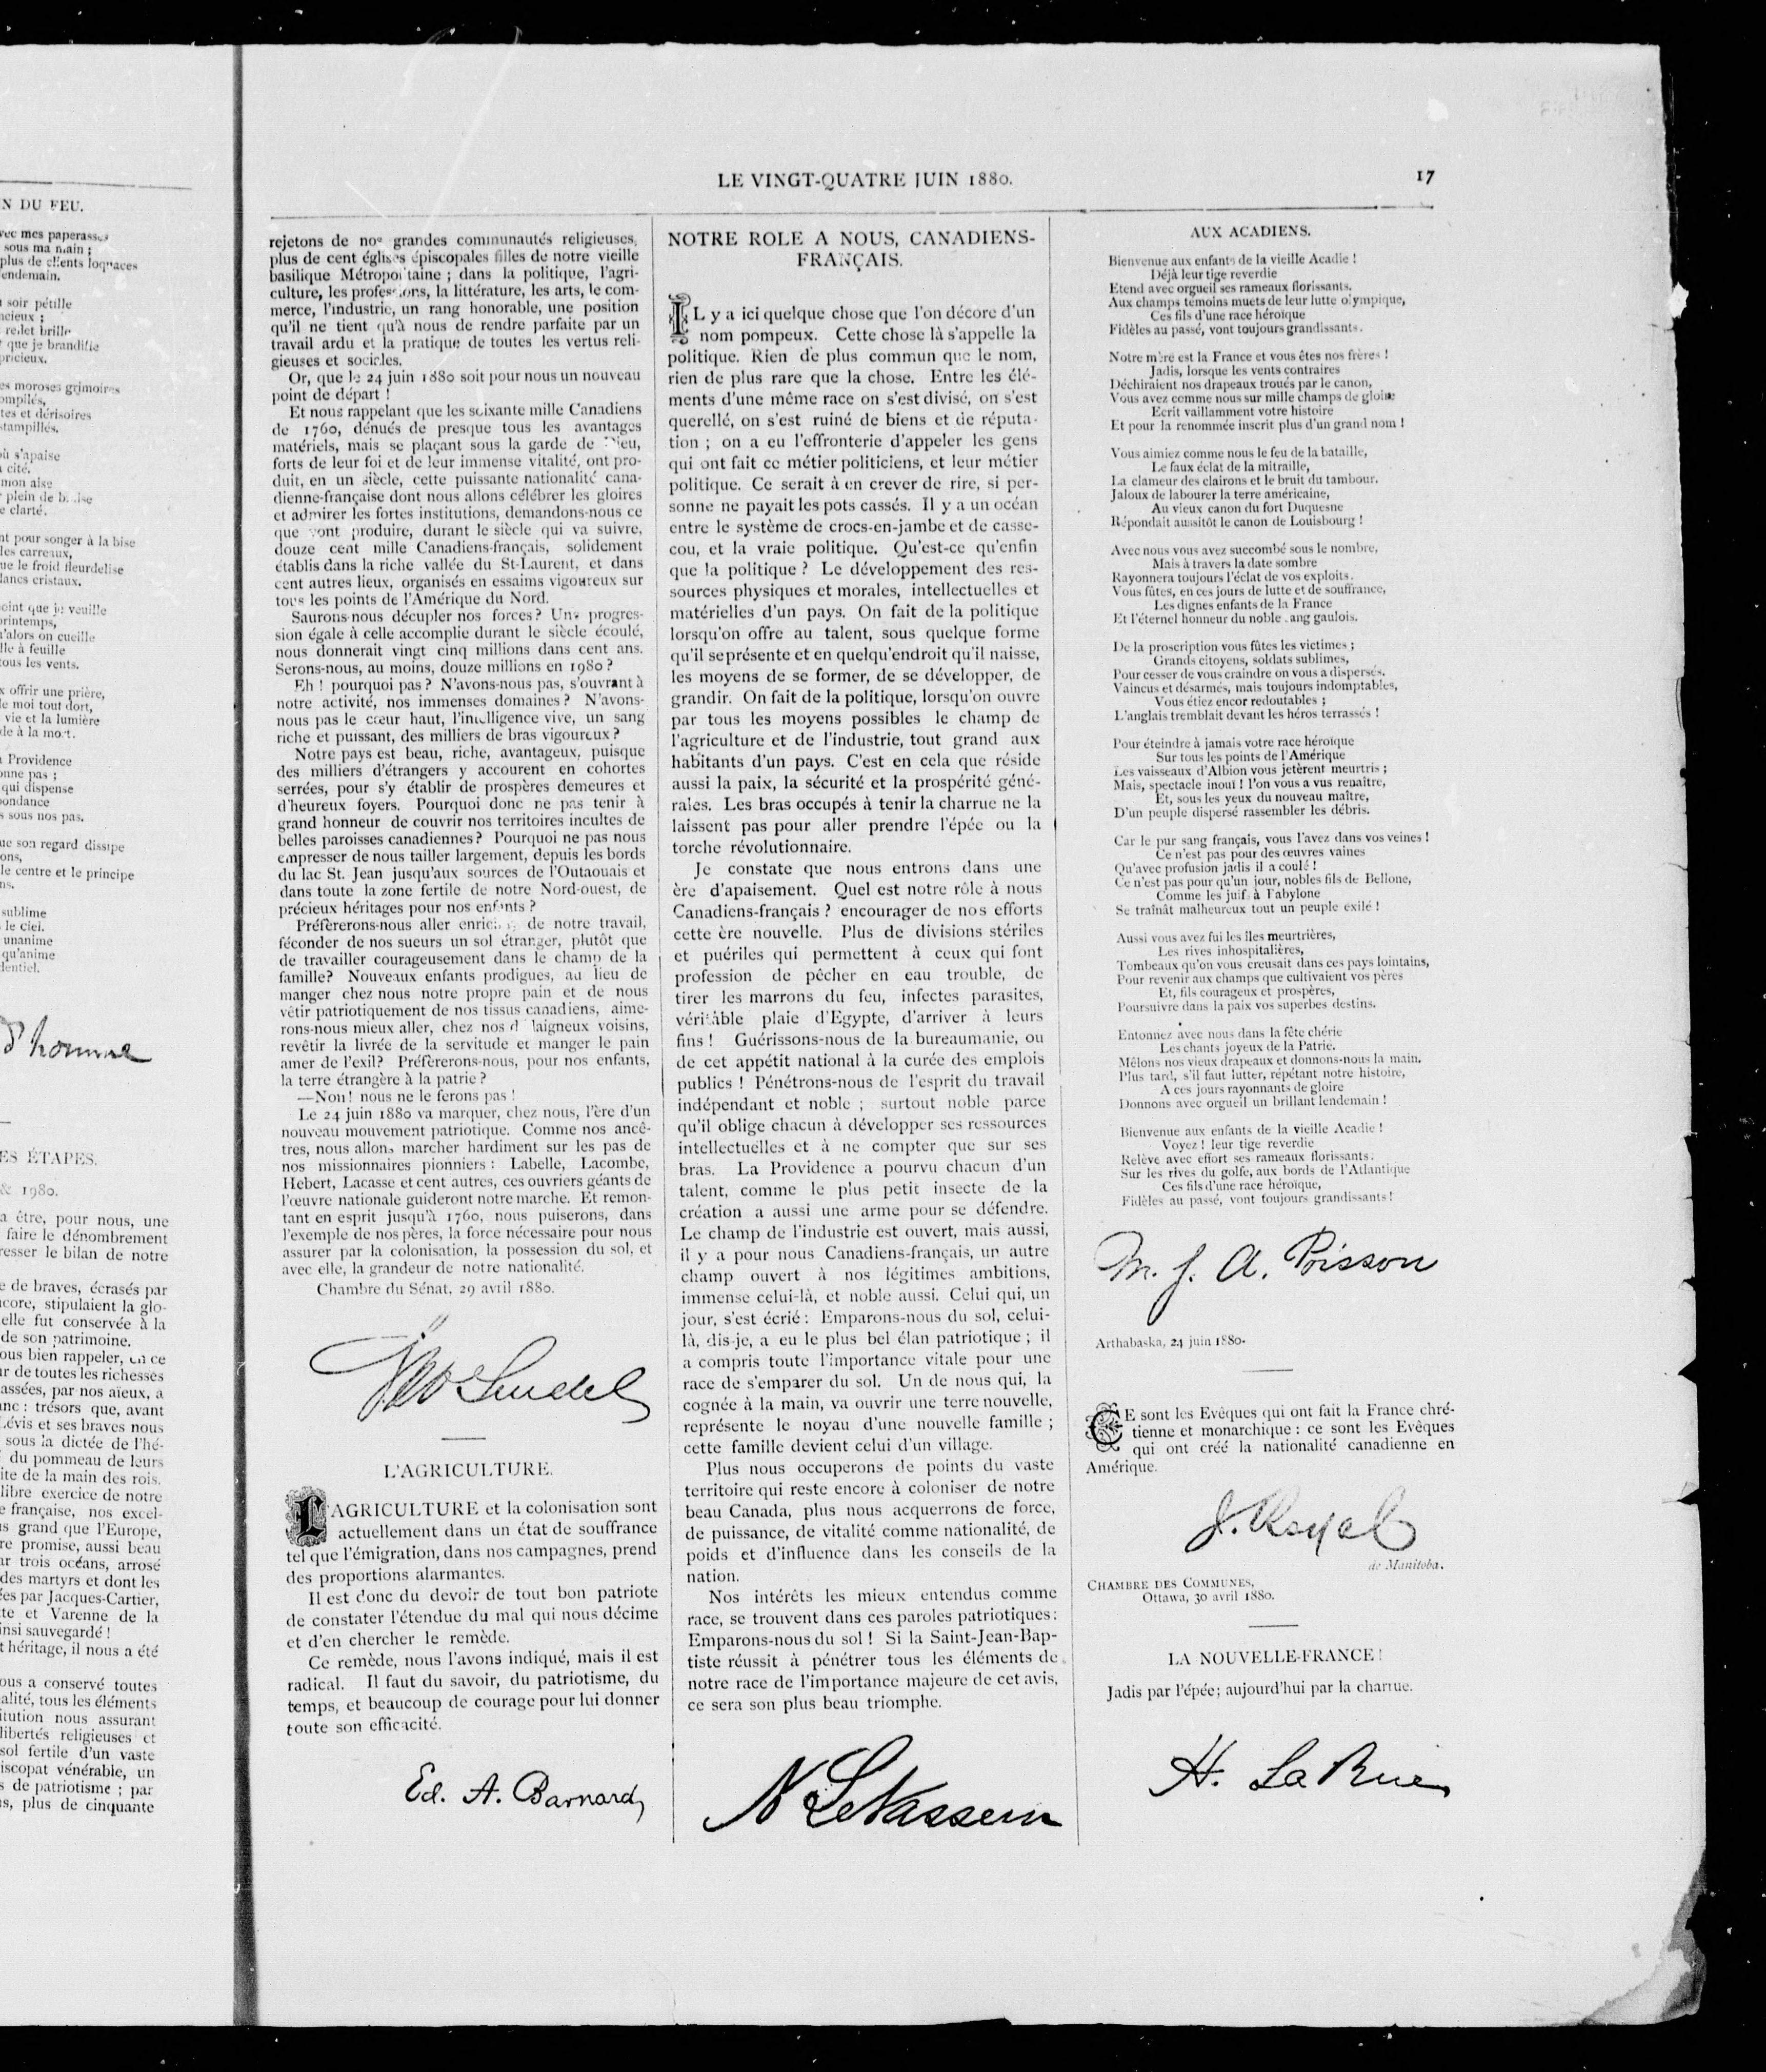 N DU FEU.
vec mes paperasses
sous ma main ;
plus de clients loquaces
endemain.
soir pétille
ncieux ;
reflet brille
que je brandille
pricieux.
es moroses grimoires
ompilés,
tes et dérisoires
stampillés.
où s'apaise
cité.
mon aise
plein de
e clarté.
nt pour songer à la bise
les carreaux,
ue le froid fleurdelise
lancs cristaux.
oint que je veuille
printemps,
u'alors on cueille
lle à feuille
tous les vents.
x offrir une prière,
le moi tout dort,
vie et la lumière
de à la mort.
Providence
onne pas ;
qui dispense
ondance
s sous nos pas.
ue son regard dissipe
ons,
le centre et le principe
ns.
sublime
le ciel.
unanime
qu'anime
dentiel.
d'homme
ES ÉTAPES.
& 1980.
a être, pour nous, une
faire le dénombrement
resser le bilan de notre
e de braves, écrasés par
core, stipulaient la glo-
elle fut conservée à la
de son patrimoine.
ous bien rappeler, en ce
ur de toutes les richesses
assées, par nos aïeux, a
nc : trésors que, avant
Lévis et ses braves nous
sous la dictée de l'hé-
du pommeau de leurs
ite de la main des rois.
libre exercice de notre
e française, nos excel-
s grand que l'Europe,
re promise, aussi beau
ur trois océans, arrosé
des martyrs et dont les
ées par Jacques-Cartier,
te et Varenne de la
insi sauvegardé !
t héritage, il nous a été
ous a conservé toutes
alité, tous les éléments
itution nous assurant
libertés religieuses et
sol fertile d'un vaste
iscopat vénérable, un
s de patriotisme ; par
s, plus de cinquante
LE VINGT-QUATRE JUIN 1880.
17
rejetons de nos grandes communautés religieuses,
plus de cent églises épiscopales filles de notre vieille
basilique Métropolitaine ; dans la politique, l'agri-
culture, les professions, la littérature, les arts, le com-
merce, l'industrie, un rang honorable, une position
qu'il ne tient qu'à nous de rendre parfaite par un
travail ardu et la pratique de toutes les vertus reli-
gieuses et sociales.
Or, que le 24 juin 1880 soit pour nous un nouveau
point de départ !
Et nous rappelant que les soixante mille Canadiens
de 1760, dénués de presque tous les avantages
matériels, mais se plaçant sous la garde de Dieu,
forts de leur foi et de leur immense vitalité, ont pro-
duit, en un siècle, cette puissante nationalité cana-
dienne-française dont nous allons célébrer les gloires
et admirer les fortes institutions, demandons-nous ce
que vont produire, durant le siècle qui va suivre,
douze cent mille Canadiens-français, solidement
établis dans la riche vallée du St-Laurent, et dans
cent autres lieux, organisés en essaims vigoureux sur
tous les points de l'Amérique du Nord.
Saurons-nous décupler nos forces? Une progres-
sion égale à celle accomplie durant le siècle écoulé,
nous donnerait vingt cinq millions dans cent ans.
Serons-nous, au moins, douze millions en 1980 ?
Eh ! pourquoi pas ? N'avons-nous pas, s'ouvrant à
notre activité, nos immenses domaines ? N'avons-
nous pas le cœur haut, l'intelligence vive, un sang
riche et puissant, des milliers de bras vigoureux ?
Notre pays est beau, riche, avantageux, puisque
des milliers d'étrangers y accourent en cohortes
serrées, pour s'y établir de prospères demeures et
d'heureux foyers. Pourquoi donc ne pas tenir à
grand honneur de couvrir nos territoires incultes de
belles paroisses canadiennes ? Pourquoi ne pas nous
empresser de nous tailler largement, depuis les bords
du lac St. Jean jusqu'aux sources de l'Outaouais et
dans toute la zone fertile de notre Nord-ouest, de
précieux héritages pour nos enfants ?
Préfèrerons-nous aller enrichir de notre travail,
féconder de nos sueurs un sol étranger, plutôt que
de travailler courageusement dans le champ de la
famille? Nouveaux enfants prodigues, au lieu de
manger chez nous notre propre pain et de nous
vêtir patriotiquement de nos tissus canadiens, aime-
rons-nous mieux aller, chez nos dédaigneux voisins,
revêtir la livrée de la servitude et manger le pain
amer de l'exil? Préfèrerons-nous, pour nos enfants,
la terre étrangère à la patrie ?
—Non! nous ne le ferons pas !
Le 24 juin 1880 va marquer, chez nous, l'ère d'un
nouveau mouvement patriotique. Comme nos ancê-
tres, nous allons marcher hardiment sur les pas de
nos missionnaires pionniers : Labelle, Lacombe,
Hebert, Lacasse et cent autres, ces ouvriers géants de
l'œuvre nationale guideront notre marche. Et remon-
tant en esprit jusqu'à 1760, nous puiserons, dans
l'exemple de nos pères, la force nécessaire pour nous
assurer par la colonisation, la possession du sol, et
avec elle, la grandeur de notre nationalité.
Chambre du Sénat, 29 avril 1880.
Trudel
L'AGRICULTURE.
L'AGRICULTURE et la colonisation sont
actuellement dans un état de souffrance
tel que l'émigration, dans nos campagnes, prend
des proportions alarmantes.
Il est donc du devoir de tout bon patriote
de constater l'étendue du mal qui nous décime
et d'en chercher le remède.
Ce remède, nous l'avons indiqué, mais il est
radical. Il faut du savoir, du patriotisme, du
temps, et beaucoup de courage pour lui donner
toute son efficacité.
Ed. A. Barnard
NOTRE ROLE A NOUS, CANADIENS-
FRANÇAIS.
IL y a ici quelque chose que l'on décore d'un
nom pompeux. Cette chose là s'appelle la
politique. Rien de plus commun que le nom,
rien de plus rare que la chose. Entre les élé-
ments d'une même race on s'est divisé, on s'est
querellé, on s'est ruiné de biens et de réputa-
tion ; on a eu l'effronterie d'appeler les gens
qui ont fait ce métier politiciens, et leur métier
politique. Ce serait à en crever de rire, si per-
sonne ne payait les pots cassés. Il y a un océan
entre le système de crocs-en-jambe et de casse-
cou, et la vraie politique. Qu'est-ce qu'enfin
que la politique ? Le développement des res-
sources physiques et morales, intellectuelles et
matérielles d'un pays. On fait de la politique
lorsqu'on offre au talent, sous quelque forme
qu'il se présente et en quelqu'endroit qu'il naisse,
les moyens de se former, de se développer, de
grandir. On fait de la politique, lorsqu'on ouvre
par tous les moyens possibles le champ de
l'agriculture et de l'industrie, tout grand aux
habitants d'un pays. C'est en cela que réside
aussi la paix, la sécurité et la prospérité géné-
rales. Les bras occupés à tenir la charrue ne la
laissent pas pour aller prendre l'épée ou la
torche révolutionnaire.
Je constate que nous entrons dans une
ère d'apaisement. Quel est notre rôle à nous
Canadiens-français ? encourager de nos efforts
cette ère nouvelle. Plus de divisions stériles
et puériles qui permettent à ceux qui font
profession de pêcher en eau trouble, de
tirer les marrons du feu, infectes parasites,
véritable plaie d'Egypte, d'arriver à leurs
fins ! Guérissons-nous de la bureaumanie, ou
de cet appétit national à la curée des emplois
publics ! Pénétrons-nous de l'esprit du travail
indépendant et noble ; surtout noble parce
qu'il oblige chacun à développer ses ressources
intellectuelles et à ne compter que sur ses
bras. La Providence a pourvu chacun d'un
talent, comme le plus petit insecte de la
création a aussi une arme pour se défendre.
Le champ de l'industrie est ouvert, mais aussi,
il y a pour nous Canadiens-français, un autre
champ ouvert à nos légitimes ambitions,
immense celui-là, et noble aussi. Celui qui, un
jour, s'est écrié : Emparons-nous du sol, celui-
là, dis-je, a eu le plus bel élan patriotique ; il
a compris toute l'importance vitale pour une
race de s'emparer du sol. Un de nous qui, la
cognée à la main, va ouvrir une terre nouvelle,
représente le noyau d'une nouvelle famille ;
cette famille devient celui d'un village.
Plus nous occuperons de points du vaste
territoire qui reste encore à coloniser de notre
beau Canada, plus nous acquerrons de force,
de puissance, de vitalité comme nationalité, de
poids et d'influence dans les conseils de la
nation.
Nos intérêts les mieux entendus comme
race, se trouvent dans ces paroles patriotiques :
Emparons-nous du sol ! Si la Saint-Jean-Bap-
tiste réussit à pénétrer tous les éléments de
notre race de l'importance majeure de cet avis,
ce sera son plus beau triomphe.
N LeVasseur
AUX ACADIENS.
Bienvenue aux enfants de la vieille Acadie !
Déjà leur tige reverdie
Etend avec orgueil ses rameaux florissants.
Aux champs témoins muets de leur lutte olympique,
Ces fils d'une race héroïque
Fidèles au passé, vont toujours grandissants.
Notre mère est la France et vous êtes nos frères !
Jadis, lorsque les vents contraires
Déchiraient nos drapeaux troués par le canon,
Vous avez comme nous sur mille champs de gloire
Ecrit vaillamment votre histoire
Et pour la renommée inscrit plus d'un grand nom !
Vous aimiez comme nous le feu de la bataille,
Le faux éclat de la mitraille,
La clameur des clairons et le bruit du tambour.
Jaloux de labourer la terre américaine,
Au vieux canon du fort Duquesne
Répondait aussitôt le canon de Louisbourg !
Avec nous vous avez succombé sous le nombre,
Mais à travers la date sombre
Rayonnera toujours l'éclat de vos exploits.
Vous fûtes, en ces jours de lutte et de souffrance,
Les dignes enfants de la France
Et l'éternel honneur du noble sang gaulois.
De la proscription vous fûtes les victimes ;
Grands citoyens, soldats sublimes,
Pour cesser de vous craindre on vous a dispersés.
Vaincus et désarmés, mais toujours indomptables,
Vous étiez encor redoutables ;
L'anglais tremblait devant les héros terrassés !
Pour éteindre à jamais votre race héroïque
Sur tous les points de l'Amérique
Les vaisseaux d'Albion vous jetèrent meurtris ;
Mais, spectacle inouï ! l'on vous a vus renaître,
Et, sous les yeux du nouveau maître,
D'un peuple dispersé rassembler les débris.
Car le pur sang français, vous l'avez dans vos veines !
Ce n'est pas pour des œuvres vaines
Qu'avec profusion jadis il a coulé !
Ce n'est pas pour qu'un jour, nobles fils de Bellone,
Comme les juifs à Babylone
Se traînât malheureux tout un peuple exilé !
Aussi vous avez fui les îles meurtrières,
Les rives inhospitalières,
Tombeaux qu'on vous creusait dans ces pays lointains,
Pour revenir aux champs que cultivaient vos pères
Et, fils courageux et prospères,
Poursuivre dans la paix vos superbes destins.
Entonnez avec nous dans la fête chérie
Les chants joyeux de la Patrie.
Mêlons nos vieux drapeaux et donnons-nous la main.
Plus tard, s'il faut lutter, répétant notre histoire,
A ces jours rayonnants de gloire
Donnons avec orgueil un brillant lendemain !
Bienvenue aux enfants de la vieille Acadie !
Voyez ! leur tige reverdie
Relève avec effort ses rameaux florissants.
Sur les rives du golfe, aux bords de l'Atlantique
Ces fils d'une race héroïque,
Fidèles au passé, vont toujours grandissants !
M. J. A. Poisson
Arthabaska, 24 juin 1880.
CE sont les Evêques qui ont fait la France chré-
tienne et monarchique : ce sont les Evêques
qui ont créé la nationalité canadienne en
Amérique.
J. Royal
de Manitoba.
CHAMBRE DES COMMUNES,
Ottawa, 30 avril 1880.
LA NOUVELLE-FRANCE !
Jadis par l'épée; aujourd'hui par la charrue.
H. LaRue